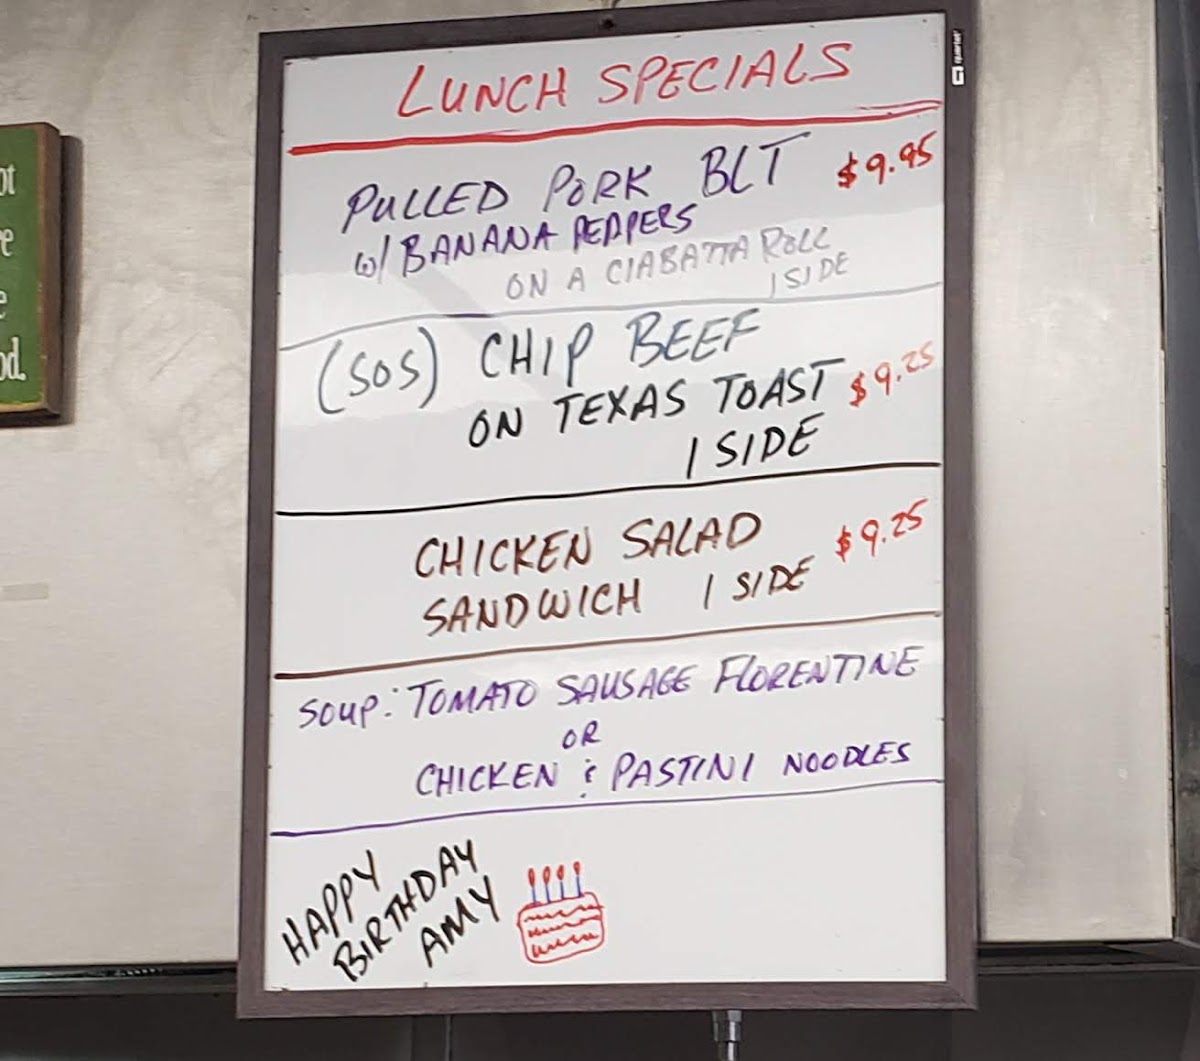 LUNCH SPECIALS
PULLED PORK BLT $9.95
w/ BANANA PEPPERS
ON A CIABATTA ROLL
1 SIDE
(SOS) CHIP BEEF
ON TEXAS TOAST $9.25
1 SIDE
CHICKEN SALAD $9.25
SANDWICH 1 SIDE
SOUP: TOMATO SAUSAGE FLORENTINE
OR
CHICKEN & PASTINI NOODLES
HAPPY
BIRTHDAY
AMY
quartet
od.